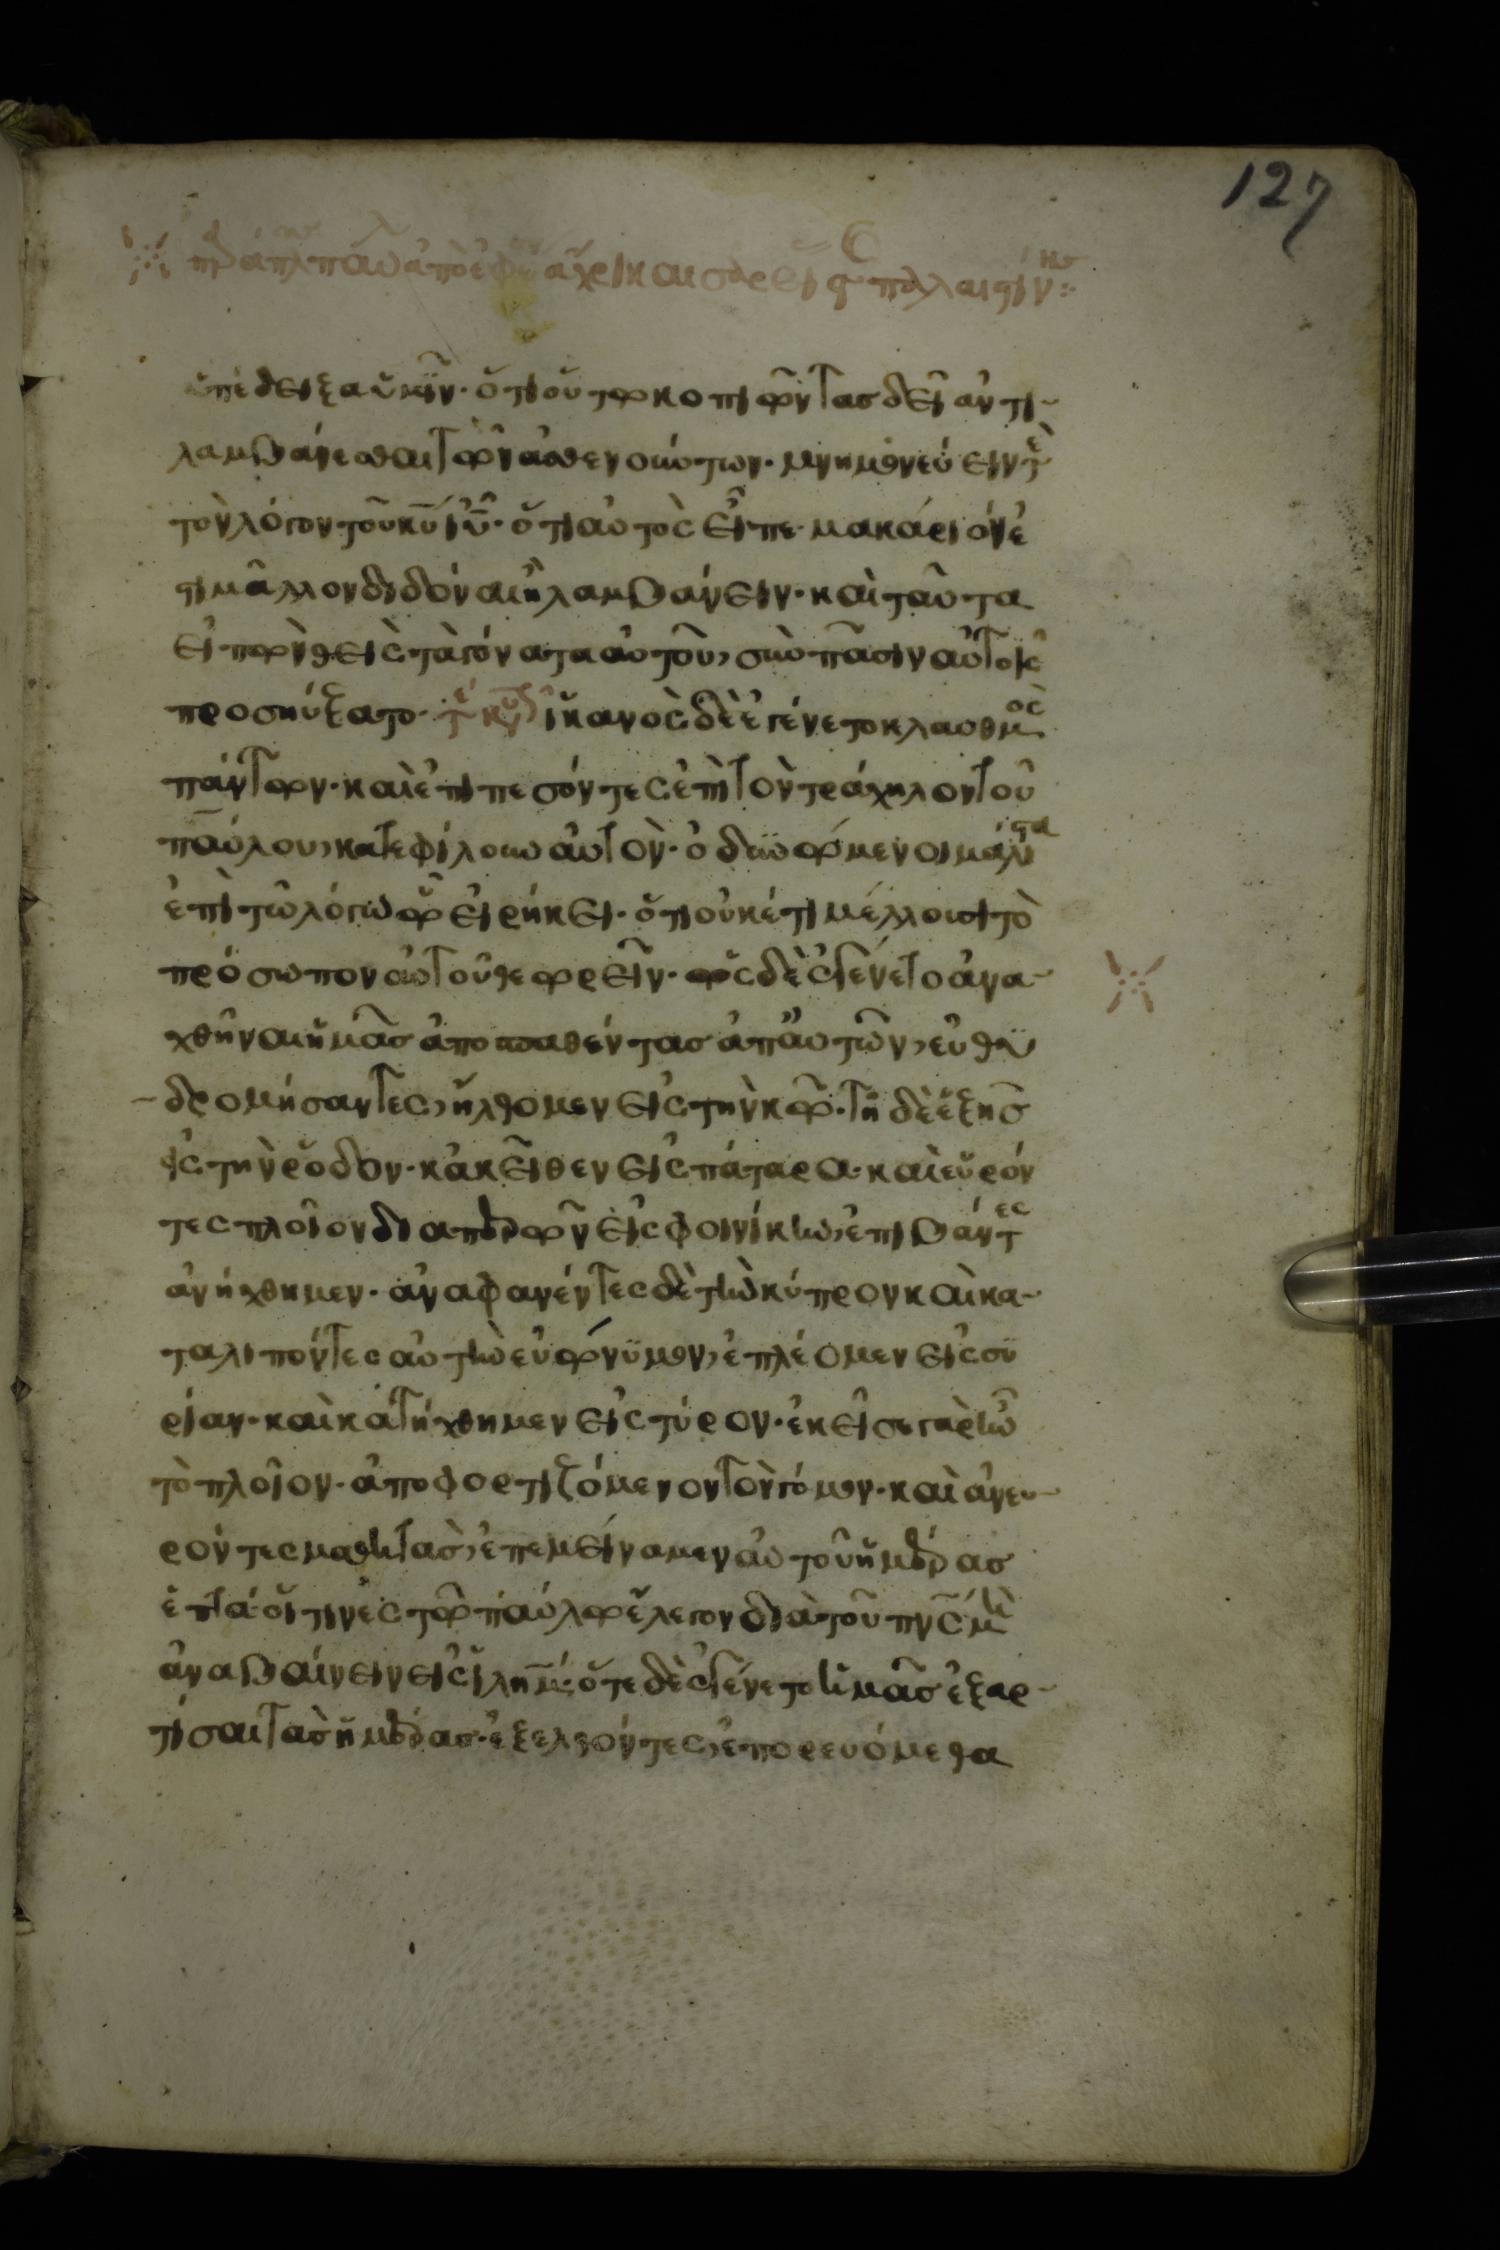 127
ὑπέδειξα ὑμῖν· ὅτι οὕτω κοπιῶντας δεῖ ἀντι
λαμβάνεσθαι τῶν ἀσθενούντων· μνημονεύειν τὲ
τὸν λόγον τοῦ κυ ιυ· ὅτι αὐτὸς εἶπε μακάριόν ἐ
στι μᾶλλον διδόναι ἢ λαμβάνειν· καὶ ταῦτα
εἰπὼν θεὶς τὰ γόνατα αὐτοῦ, σὺν πᾶσιν αὐτοῖς
προσηύξατο· ἱκανὸς δὲ ἐγένετο κλαυθμὸς
πάντων· καὶ ἐπιπεσόντες ἐπὶ τὸν τράχηλον τοῦ
παύλου, κατεφίλουν αὐτὸν· ὀδυνώμενοι μάλιστα
ἐπὶ τῶ λόγω ὧ εἰρήκει· ὅτι οὐκέτι μέλλουσι τὸ
πρόσωπον αὐτοῦ θεωρεῖν· ὡς δὲ ἐγένετο ἀνα
χθῆναι ἡμᾶς ἀποσπαθέντας ἀπ αὐτῶν, εὐθυ
δρομήσαντες, ἤλθομεν εἰς τὴν κῶ· τῆ δὲ ἑξῆς
εἰς τὴν ῥόδον· κἀκεῖθεν εἰς πάταρα· καὶ εὑρόν
τες πλοῖον διαπερῶν εἰς φοινίκην, ἐπιβάντες
ἀνήχθημεν· ἀναφανέντες δὲ τὴν κύπρον καὶ κα
ταλιπόντες αὐτὴν εὐώνυμον, ἐπλέομεν εἰς συ
ρίαν· καὶ κατήχθημεν εἰς τύρον· ἐκεῖσε γὰρ ἦν
τὸ πλοῖον· ἀποφορτιζόμενον τὸν γόμον· καὶ ἀνευ
ρόντες μαθητὰς, ἐπεμείναμεν αὐτοῦ ἡμέρας
ἑπτά· οἵτινες τῶ παύλω ἔλεγον διὰ τοῦ πνς μὴ
ἀναβαίνειν εἰς ἱλημ· ὅτε δὲ ἐγένετο ἡμᾶς ἐξαρ
τίσαι τὰς ἡμέρας· ἐξελθόντες, ἐπορευόμεθα